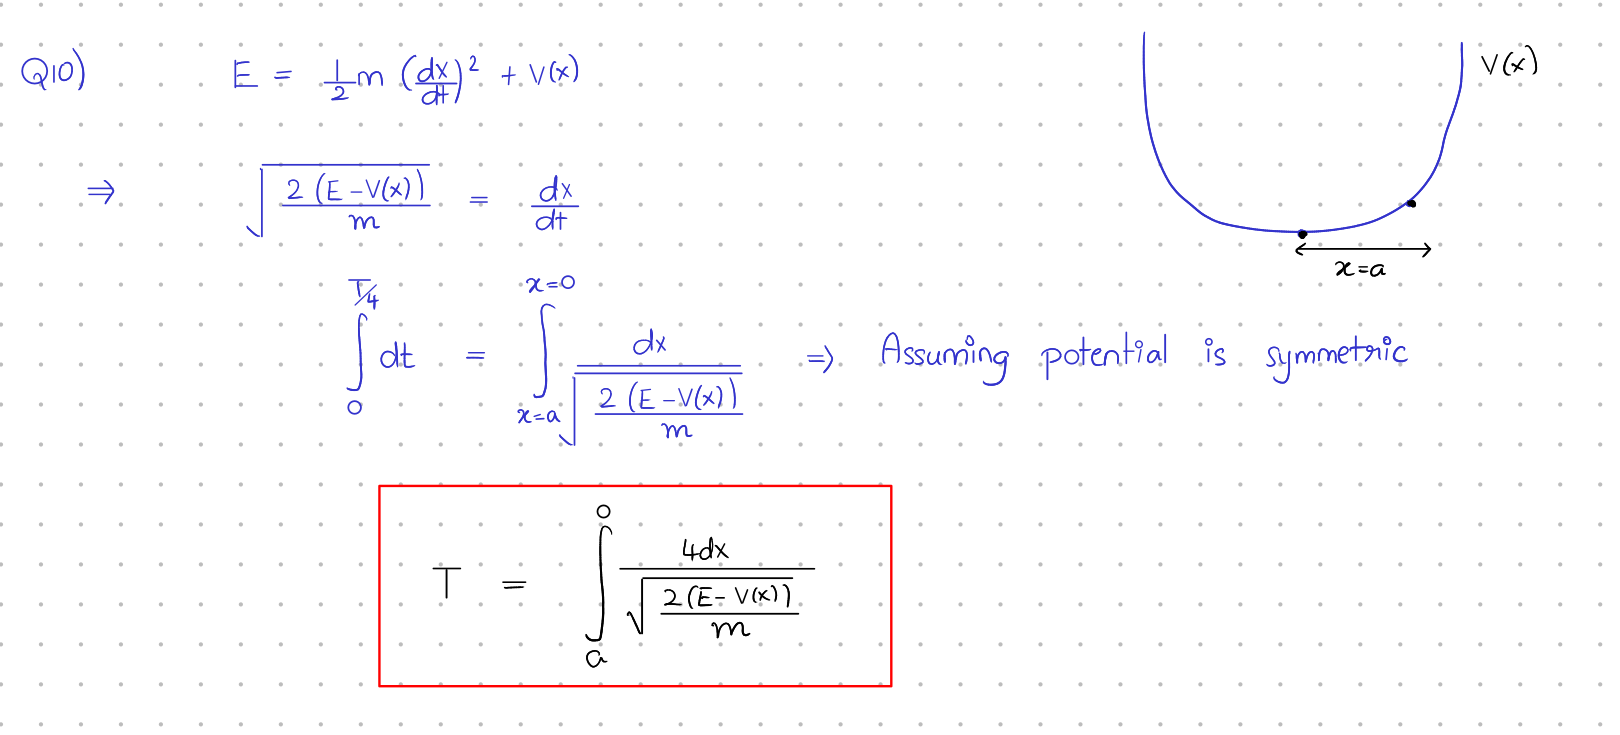 Q10) E = 1/2 m (dx/dt)² + V(x)
V(x)
x=a
⇒ √(2 (E - V(x))/m) = dx/dt
∫_0^{T/4} dt = ∫_{x=a}^{x=0} dx/√(2 (E - V(x))/m) ⇒ Assuming potential is symmetric
T = ∫_a^0 4dx/√(2(E - V(x))/m)